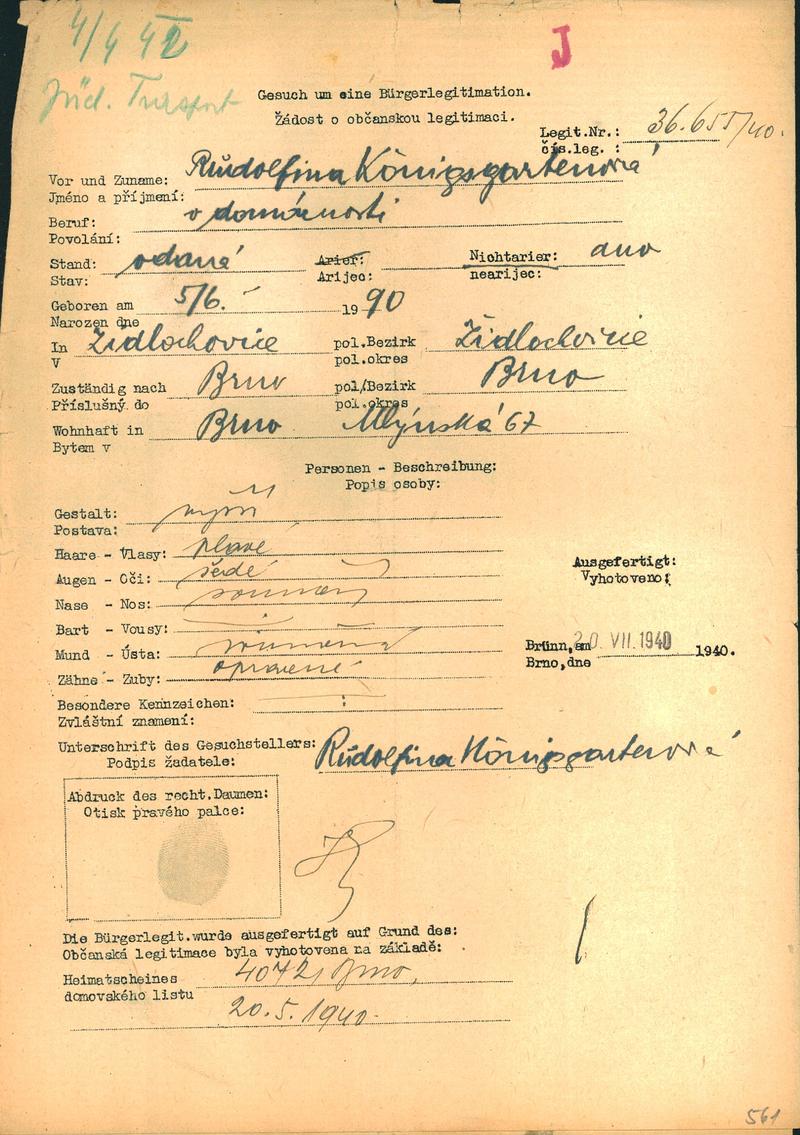 4/4 42
J
Jüd. Transport
Gesuch um eine Bürgerlegitimation.
Žádost o občanskou legitimaci.
Legit.Nr.: 36.655/40.
čís.leg. :
Vor und Zuname: Rudolfina Königsgartenová
Jméno a příjmení:
Beruf: v domácnosti
Povolání:
Stand: vdaná Arier: Nichtarier: ano
Stav: Arijec: nearijec:
Geboren am 5/6. 1990
Narozen dne
In Židlochovice pol.Bezirk Židlochovice
V pol.okres
Zuständig nach Brno pol/Bezirk Brno
Příslušný do pol.okres
Wohnhaft in Brno Mlýnská 67
Bytem v
Personen - Beschreibung:
Popis osoby:
Gestalt: vyšší
Postava:
Haare - Vlasy: plavé
Augen - Oči: šedé
Nase - Nos: souměrný
Bart - Vousy:
Mund - Ústa: souměrná
Zähne - Zuby: opravené
Ausgefertigt:
Vyhotoveno:
Brünn,am 20. VII. 1940 1940.
Brno,dne
Besondere Kennzeichen:
Zvláštní znamení:
Unterschrift des Gesuchstellers: Rudolfina Königsgartenová
Podpis žadatele:
Abdruck des recht.Daumen:
Otisk pravého palce:
Die Bürgerlegit.wurde ausgefertigt auf Grund des:
Občanská legitimace byla vyhotovena na základě:
Heimatscheines 4072, Brno,
domovského listu
20.5.1940.
561